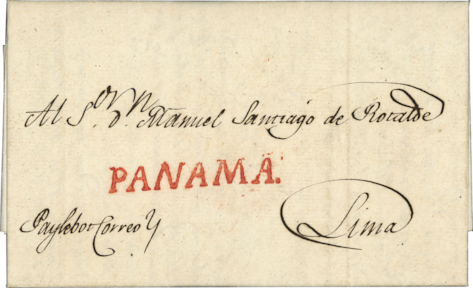 Al S.ᵒʳ Dⁿ Manuel Santiago de Rotalde
PANAMA.
Paylebot Correo Y
Lima